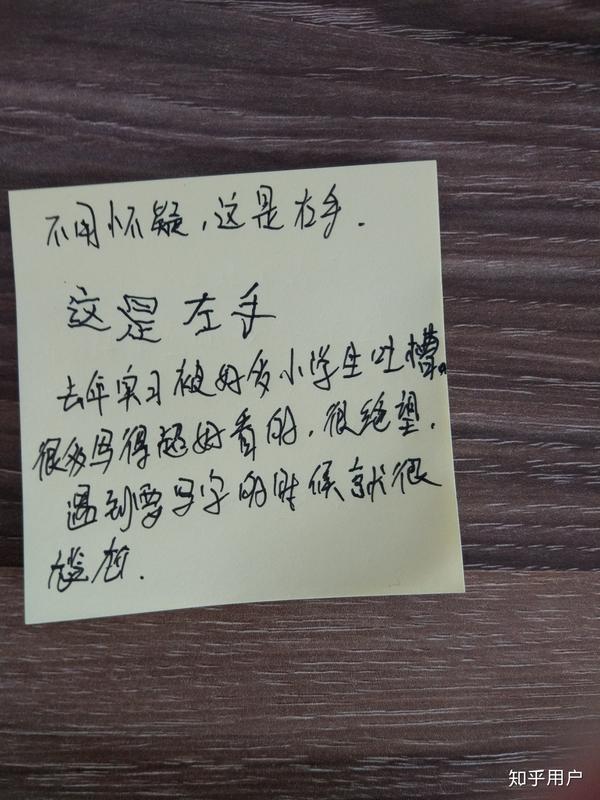 不用怀疑，这是左手．
这是左手
去年实习被好多小学生吐槽。
很多写得超好看的，很绝望．
遇到要写字的时候就很
尴尬．
知乎用户